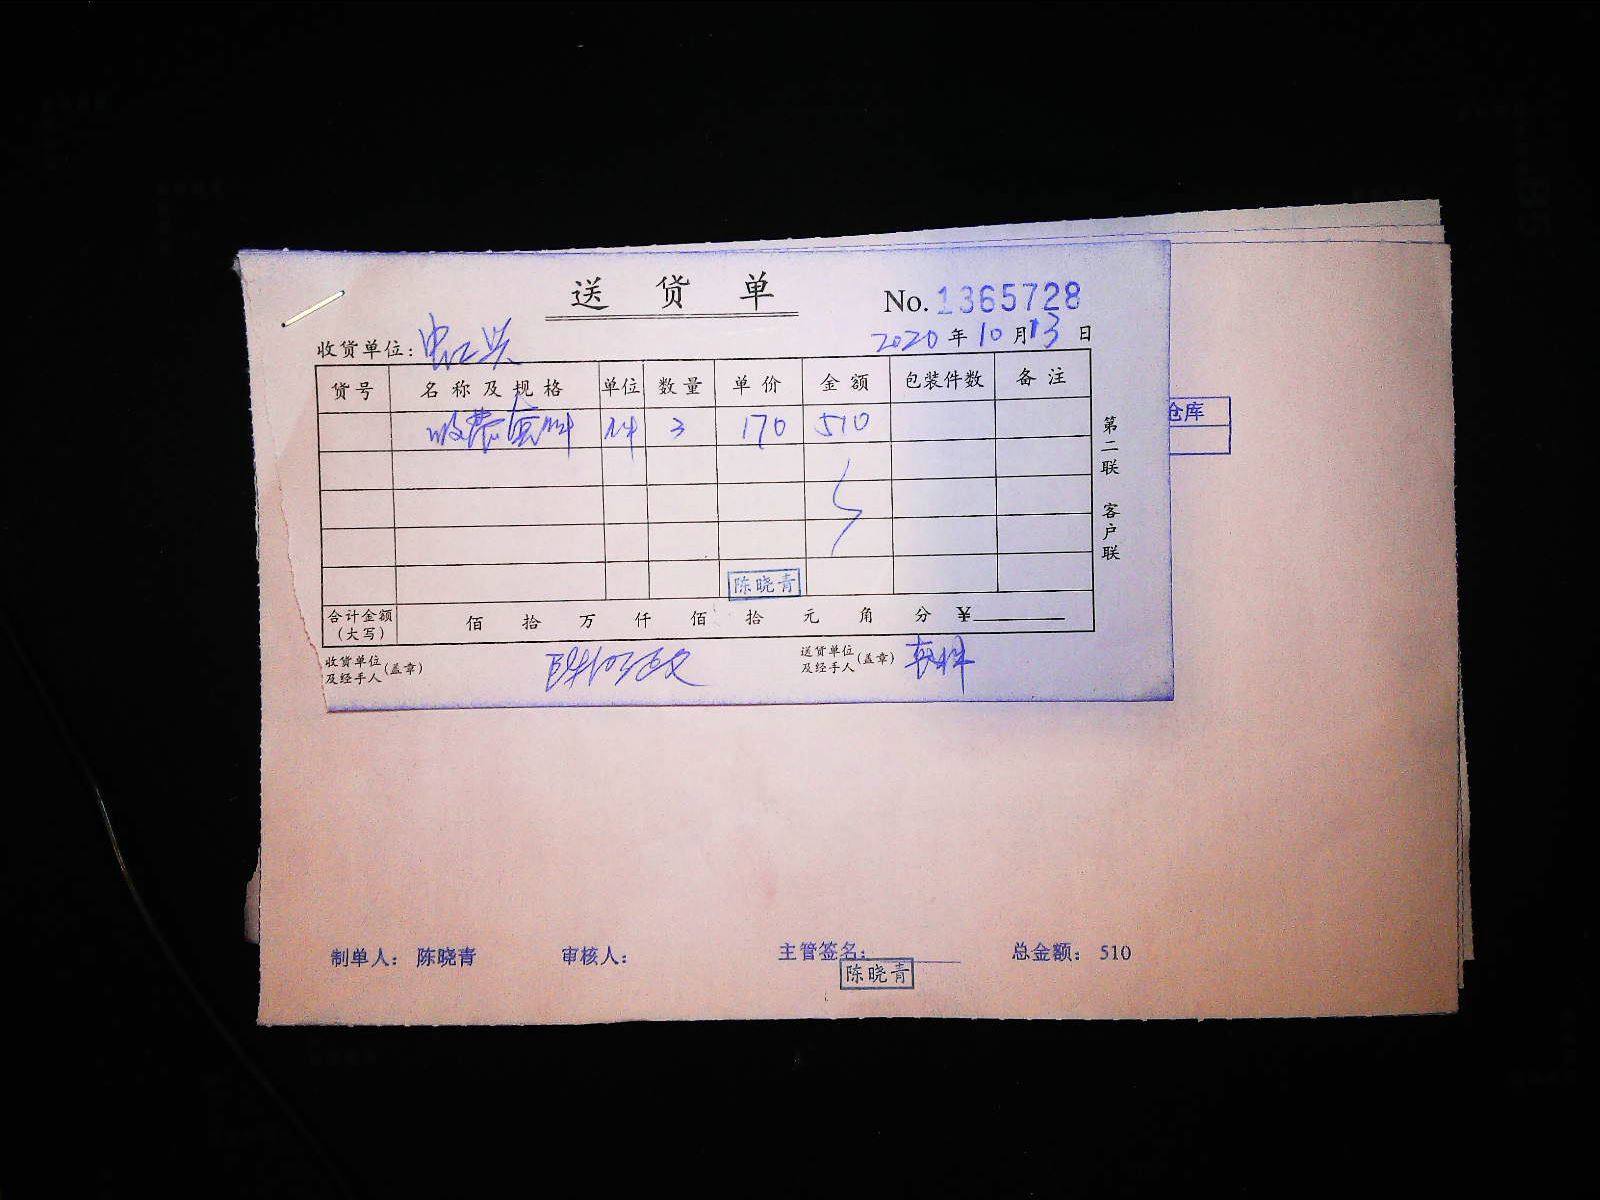 送货单
No. 1365728
收货单位：
2020年10月13日
货号 名称及规格 单位 数量 单价 金额 包装件数 备注
3 170 510
陈晓青
合计金额（大写） 佰 拾 万 仟 佰 拾 元 角 分 ¥
收货单位及经手人（盖章）
送货单位及经手人（盖章）
第二联 客户联
仓库
制单人：陈晓青 审核人： 主管签名： 总金额：510
陈晓青